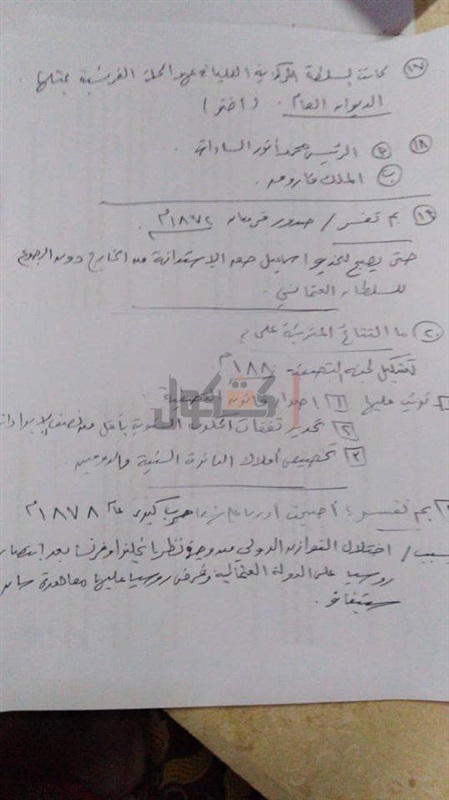 (١٧) كانت السلطة المركزية العليا في عهد الحملة الفرنسية يمثلها
الديوان العام . (اختر)
(١٨) (أ) الرئيس محمد أنور السادات .
(ب) الملك فاروق .
(١٩) بم تفسر / صدور فرمان ١٨٧٢م
حتى يصبح للخديو اسماعيل حق الإستدانة من الخارج دون الرجوع
للسلطان العثماني .
(٢٠) ما النتائج المترتبة على :
تشكيل لجنة التصفية ١٨٨٠م
ترتب عليها [١] إصدار قانون التصفية .
[٢] تحديد نفقات الحكومة السنوية بأقل من نصف الإيرادات
[٣] تخصيص أملاك الدائرة السنية
كشكول
بم تفسر : أصبحت أوربا على شفا حرب كبرى عام ١٨٧٨م
بسبب / اختلال التوازن الدولى من وجهة نظر إنجلترا وفرنسا بعد انتصار
روسيا على الدولة العثمانية وفرض روسيا عليها معاهدة سان
ستيفانو .